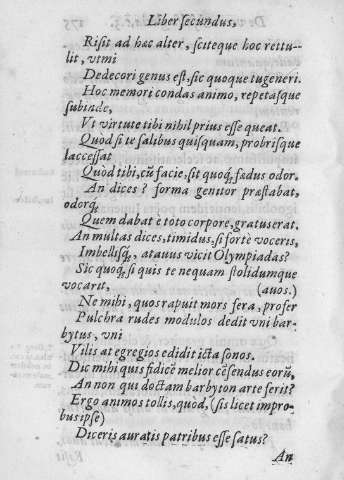 Liber secundus,
Risit ad hac alter, sciteque hoc rettu-
lit, vtmi
Dedecori genus est, sic quoque tu generi.
Hoc memori condas animo, repetasque
subinde,
Vt virtute tibi nihil prius esse queat.
Quod si te salibus quisquam, probrisque
lacessat
Quòd tibi, cũ facie, sit quoq; fœdus odor.
An dices? forma genitor præstabat,
odorq;
Quem dabat è toto corpore, gratus erat.
An multas dices, timidus, si fortè voceris,
Imbellisq;, atauus vicit Olympiadas?
Sic quoq; si quis te nequam stolidumque
vocarit, (auos.)
Ne mihi, quos rapuit mors fera, profer
Pulchra rudes modulos dedit vni bar-
bytus, vni
Vilis at egregios edidit icta sonos.
Dic mihi quis fidicẽ melior cẽsendus eorũ,
An non qui doctam barbyton arte ferit?
Ergo animos tollis, quod, (sis licet impro-
bus ipse)
Diceris auratis patribus esse satus?
An